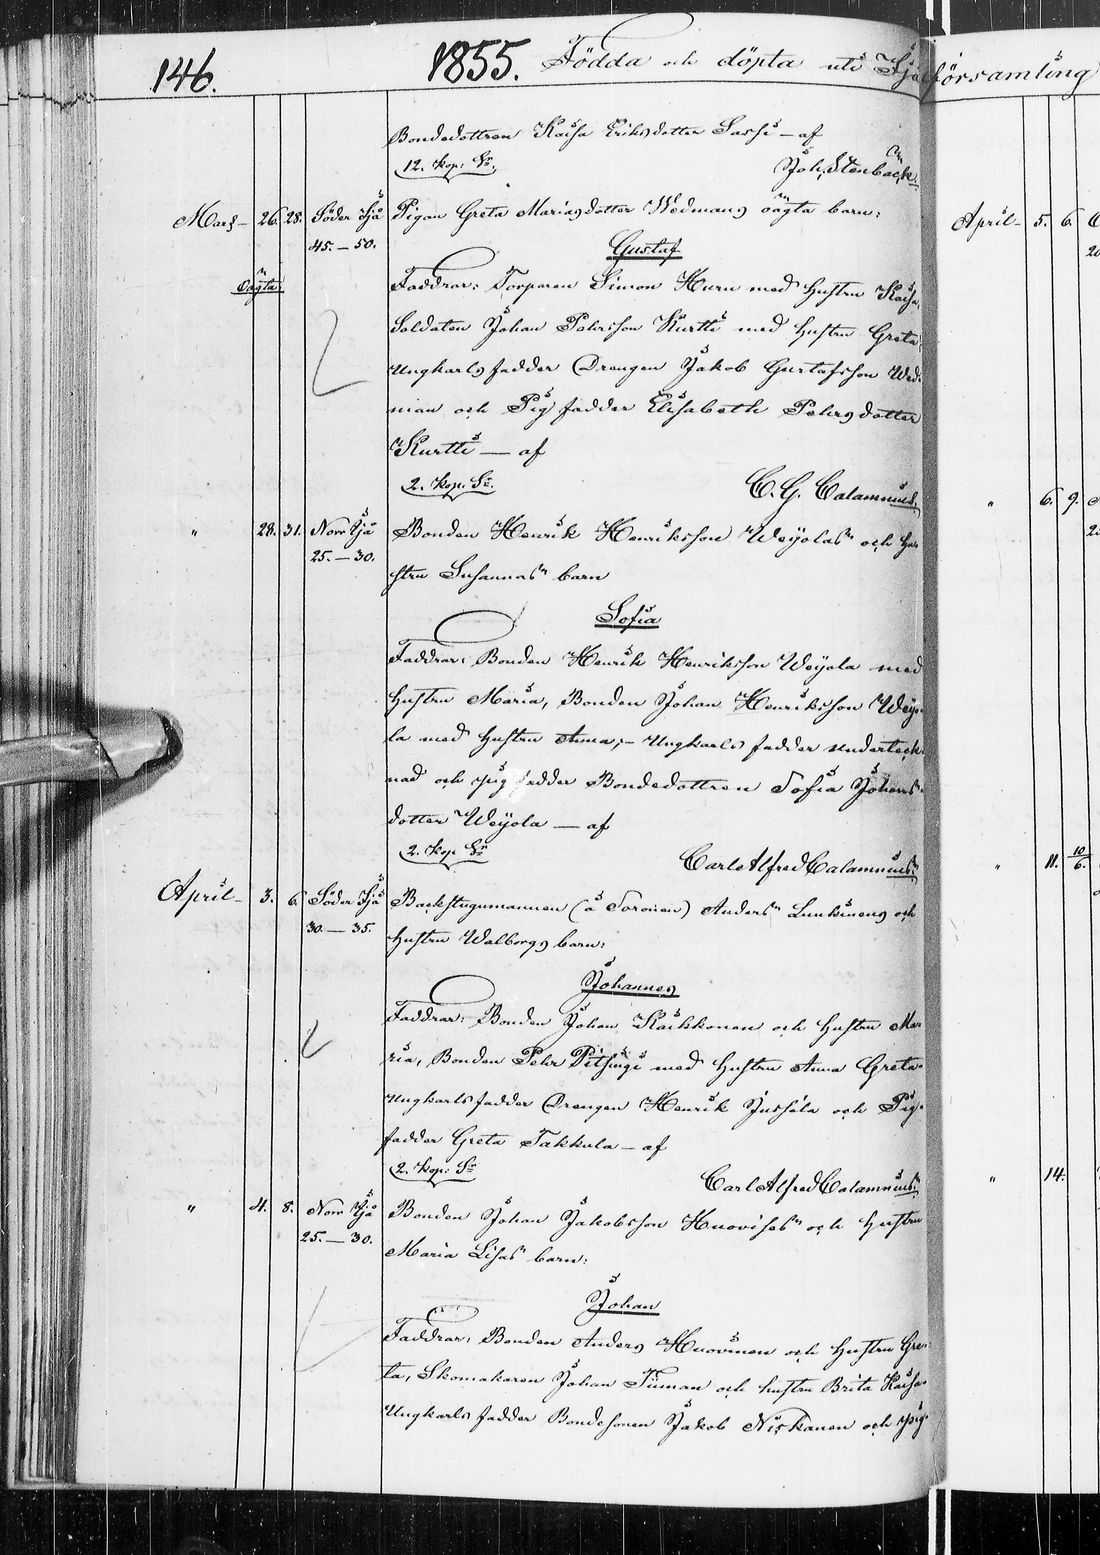 146. 1855. Födda och döpta uti församling
Bondedottren Kaisa Eriksdotter Sassi — af
12. kop. Sr. Joh. Stenbäck.
Mars — 26. 28. Söder Sjå Pigan Greta Mariasdotter Wedmans oägta barn:
45. — 50. Gustaf
Oägta Faddrar: Torparen Simon Huru med hustru Kaisa,
Soldaten Johan Pehrsson Kurtti med hustru Greta,
Ungkarls fadder Drengen Jakob Gustafsson Wed-
man och Pig fadder Elisabeth Pehrsdotter
Kurtti — af
2. kop. Sr. C. G. Calamnius.
" 28. 31. Norr Sjå Bonden Henrik Henriksson Weijolas och hu-
25. — 30. stru Susannas barn
Sofia
Faddrar: Bonden Henrik Henriksson Weijola med
hustru Maria, Bonden Johan Henriksson Weijo-
la med hustru Anna; — Ungkarls fadder underteck-
nad och pig fadder Bondedottren Sofia Johans-
dotter Weijola — af
2. kop Sr Carl Alfred Calamnius.
April — 3. 6. Söder Sjå Backstugumannen (å Toronen) Anders Lunkinens och
30. — 35. hustru Walborgs barn:
Johannes
Faddrar: Bonden Johan Kaikkonen och hustru Ma-
ria, Bonden Pehr med hustru Anna Greta
Ungkarls fadder Drengen Henrik Jussila och Pig-
fadder Greta Takkula — af
2. kop. Sr Carl Alfred Calamnius.
" 4. 8. Norr Sjå Bonden Johan Jakobsson Huovises och hustru
25. — 30. Maria Lisas barn:
Johan
Faddrar: Bonden Anders Huovinen och hustru Gre-
ta, Skomakaren Johan Timan och hustru Brita Kaisa
Ungkarls fadder Bondesonen Jakob Niskanen och pig-
April — 5. 6.
" 6. 9.
" 11. 10/6.
" 14.